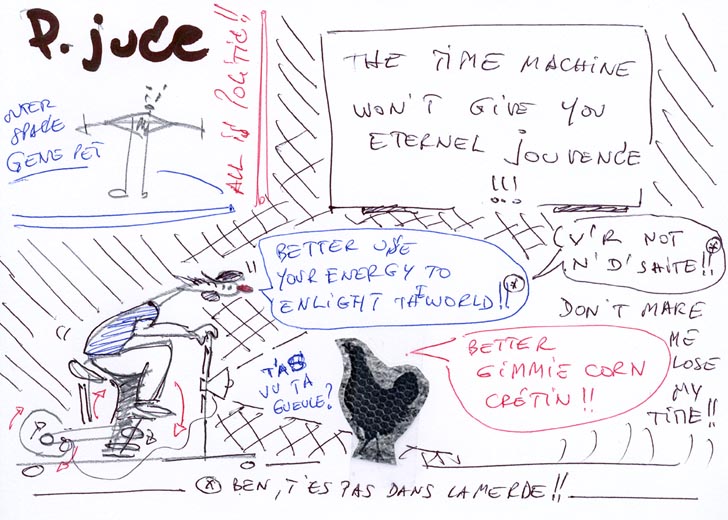 P. juce
ALL IS POLITIC!!
OUTER
SPACE
GENE PET
THE TIME MACHINE
WON'T GIVE YOU
ETERNEL JOUVENCE
!!!
BETTER USE
YOUR ENERGY TO
ENLIGHT THE WORLD!!
V'R NOT
N'D'SHITE!!
DON'T MAKE
ME
LOSE
MY
TIME!!
T'AS
VU TA
GUEULE?
BETTER
GIMMIE CORN
CRÉTIN!!
BEN, T'ES PAS DANS LA MERDE!!